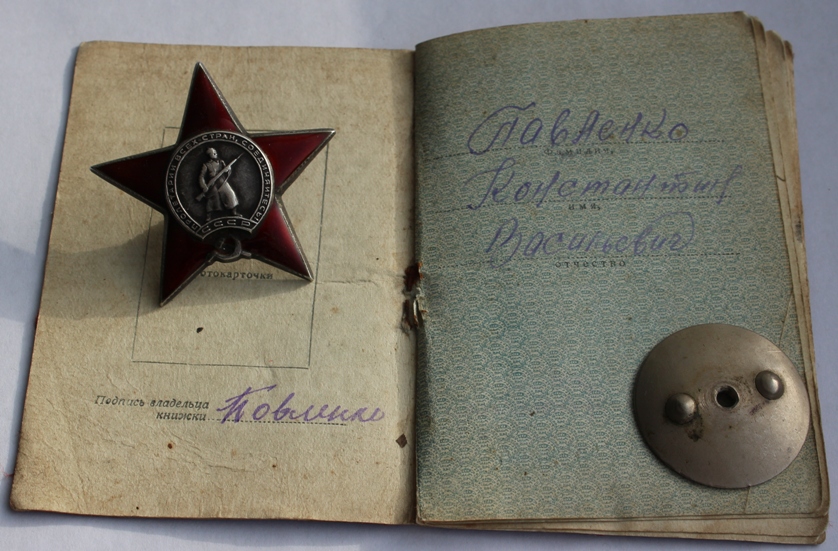 ПРОЛЕТАРИИ ВСЕХ СТРАН, СОЕДИНЯЙТЕСЬ!
СССР
фотокарточки
Подпись владельца
книжки Павленко
Павленко
фамилия,
Константин
имя,
Васильевич
отчество